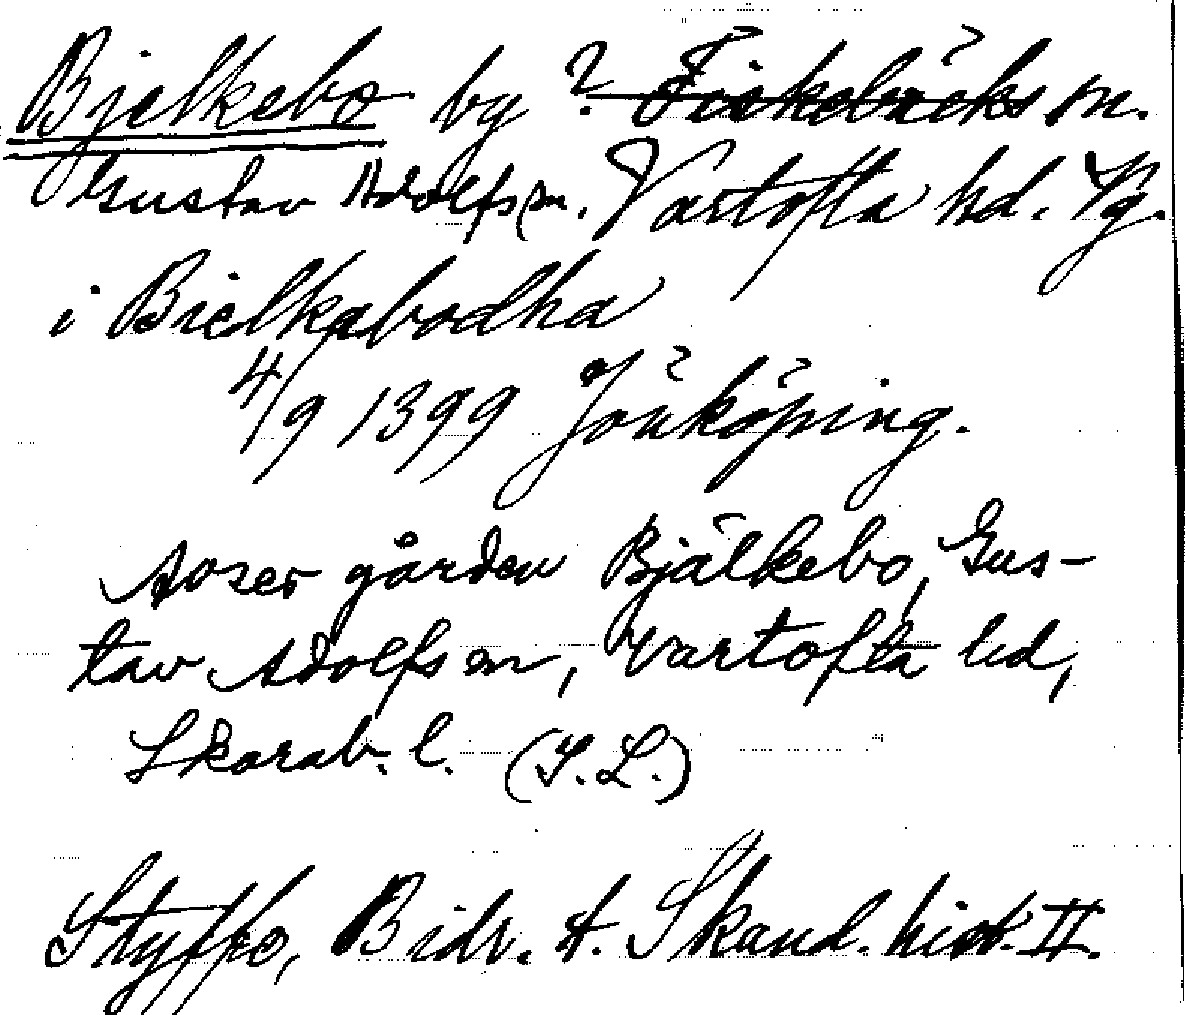 Bjelkebo by ? Fiskebäcks sn.
Gustav Adolfs sn. Vartofta hd. Vg.
i Bielkabodha
4/9 1399 Jönköping.
Avser gården Bjälkebo, Gus-
tav Adolfs sn, Vartofta hd,
Skarab. l. (I.L.)
Styffe, Bidr. t. Skand. hist. II.